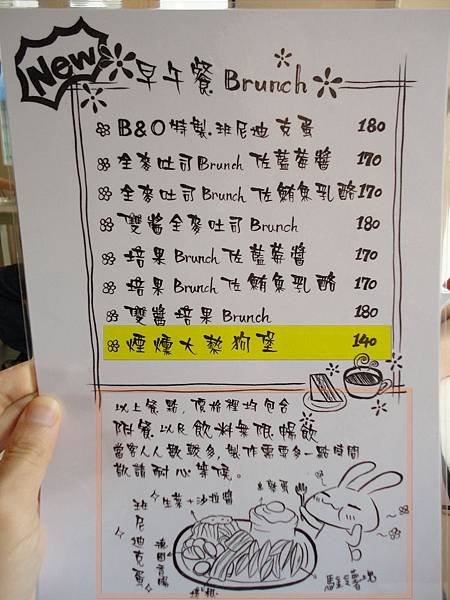 New
早午餐 Brunch
B&O特製.班尼迪克蛋 180
全麥吐司Brunch 佐藍莓醬 170
全麥吐司Brunch 佐鮪魚乳酪 170
雙醬全麥吐司 Brunch 180
培果 Brunch 佐藍莓醬 170
培果 Brunch 佐鮪魚乳酪 170
雙醬培果 Brunch 180
煙燻大熱狗堡 140
以上餐點，價格裡均包含
附餐以及飲料無限暢飲
當客人人數較多，製作需要多一點時間
敬請耐心等候。
生菜+沙拉醬
班尼迪克蛋
德國香腸
薯塊